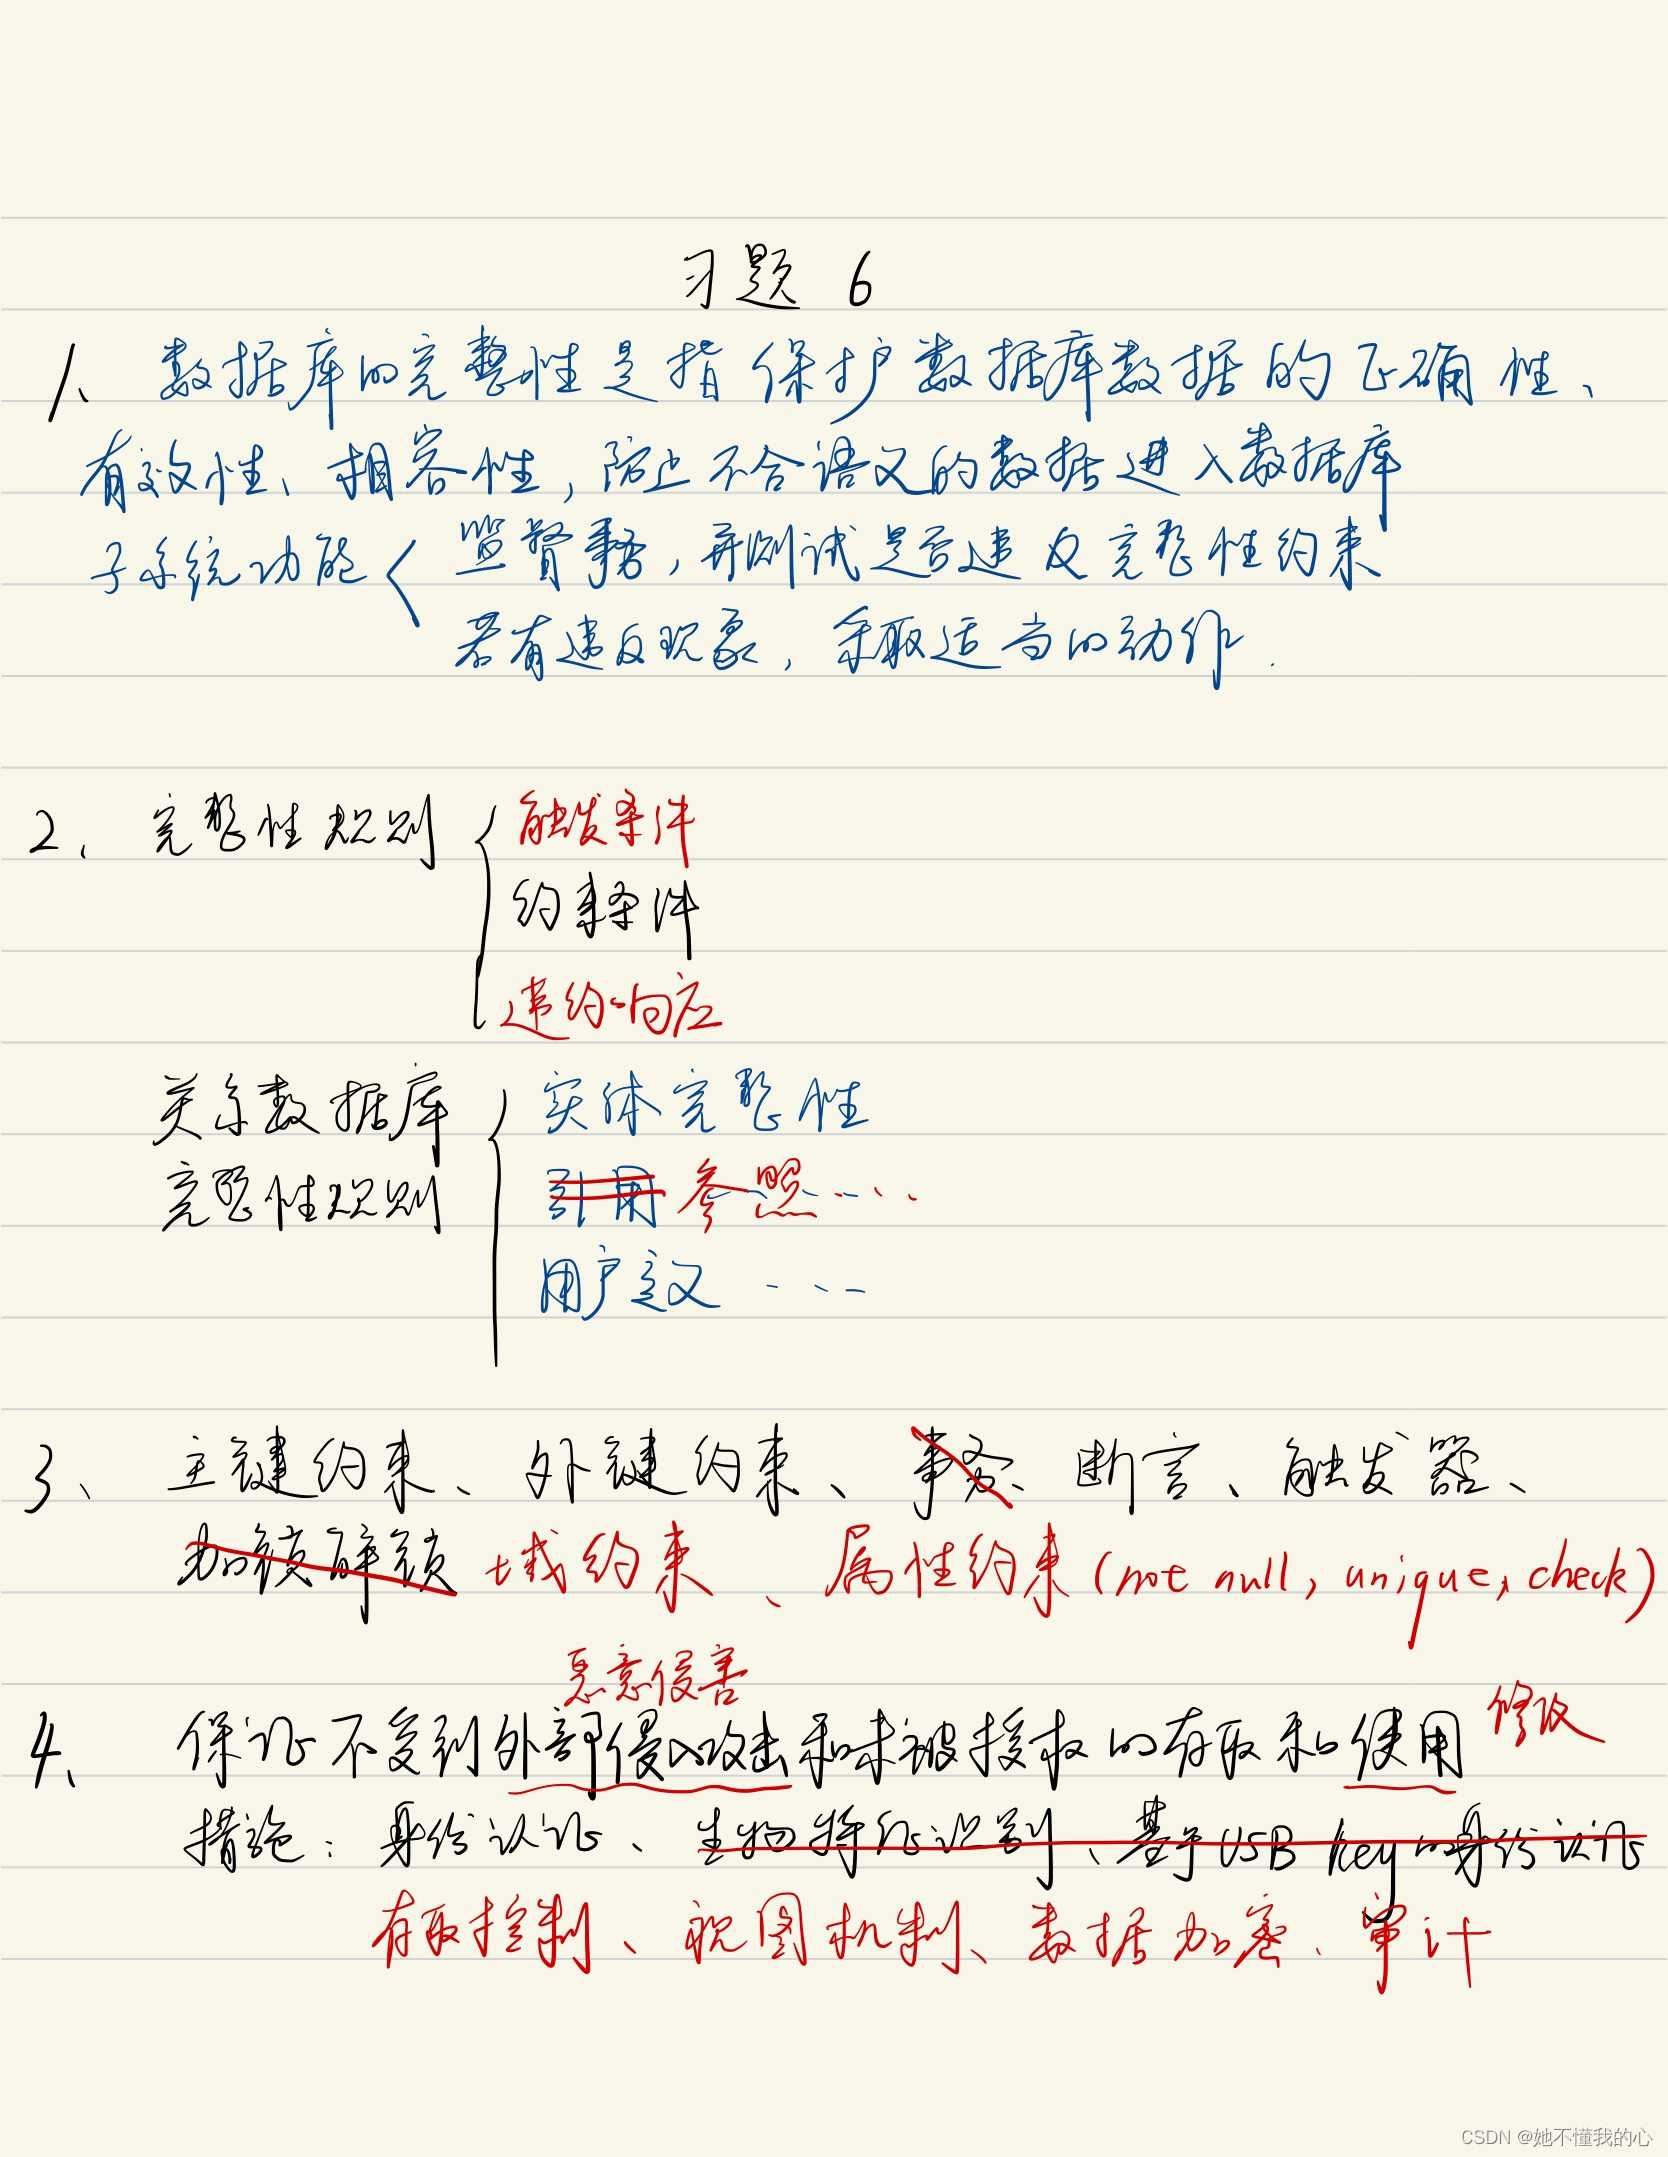 习题 6
1、数据库的完整性是指保护数据库数据的正确性、
有效性、相容性,防止不合语义的数据进入数据库
子系统功能 监督事务,并测试是否违反完整性约束
若有违反现象,采取适当的动作.
2、完整性规则 触发条件
约束条件
违约响应
关系数据库 实体完整性
完整性规则 引用 参照……
用户定义 ……
3、主键约束、外键约束、事务、断言、触发器、
加锁解锁 域约束、属性约束(not null, unique, check)
恶意侵害
4、保证不受到外部侵入攻击和未被授权的存取和使用 修改
措施:身份认证、生物特征识别、基于USB key的身份认证
存取控制、视图机制、数据加密、审计
CSDN @她不懂我的心